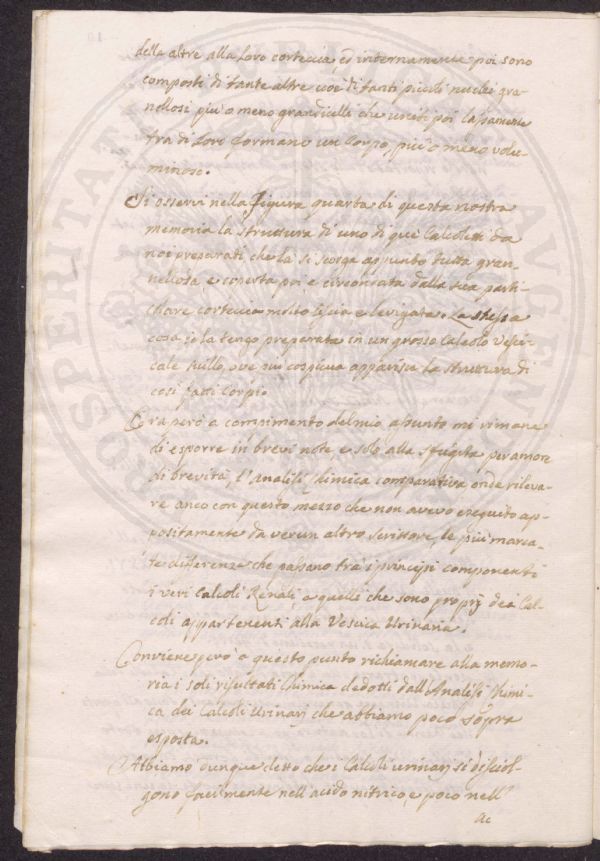 della altre alla loro corteccia, ed indernamente poi sono
composti di tante altre cioè di tanti picoli nuclei gra-
nellosi piu o meno grandicelli che uniti poi lassamente
fra di loro formano un Corpo, più o meno volu-
minoso.
Si osservi nella Figura quarta di questa nostra
memoria la struttura di uno di que' Calcoletti da
noi preparati che là si scorga appunto tutta gran-
nellosa e coperta poi e circondata dalla sua parti-
colare corteccia molto liscia e levigata. La stessa
cosa io la tengo preparata in un grosso Calcolo Vesci-
cale bullo, ove più cospicua apparisce la struttura di
così fatti Corpi.
Ora però a compimento del mio assunto mi rimane
di esporre in brevi note e solo alla sfugita per amor
di brevità, l'Analisi Chimica Comparativa onde rileva-
re anco con questo mezzo che non avevo eseguito ap-
positamente da verun altro scrittore, le più marca-
te differenze che passano fra i principi componenti
i veri Calcoli Renali, a quelli che sono proprj dei Cal-
coli appartenenti alla Vescica Urinaria.
Conviene però a questo punto richiamare alla memo-
ria i soli risultati Chimica dedotti dall'Analisi Chimi-
ca dei Calcoli Urinarj che abbiamo poco sopra
esposta.
Abbiamo dunque detto che i Calcoli urinarj si disciol-
gono facilmente nell'acido nitrico, e poco nell'
ac
PROSPERITATI AVGENDAE